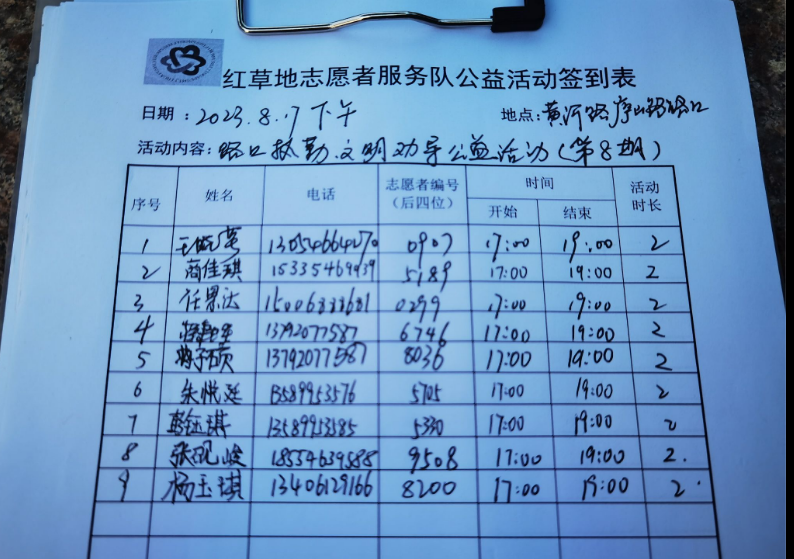 红草地志愿者服务队公益活动签到表
日期:2023.8.17下午 地点:黄河路庐山路路口
活动内容:路口执勤.文明劝导公益活动(第8期)
序号 姓名 电话 志愿者编号(后四位) 时间 开始 结束 活动时长
1 13054664270 0907 17:00 19:00 2
2 商佳琪 15335469939 5189 17:00 19:00 2
3 任果达 15006838681 0299 17:00 19:00 2
4 13792077587 6746 17:00 19:00 2
5 13792077587 8036 17:00 19:00 2
6 朱悦廷 13589953576 5705 17:00 19:00 2
7 钰琪 13589953585 5330 17:00 19:00 2
8 张现峻 18554639588 9508 17:00 19:00 2.
9 杨玉琪 13406129166 8200 17:00 19:00 2.